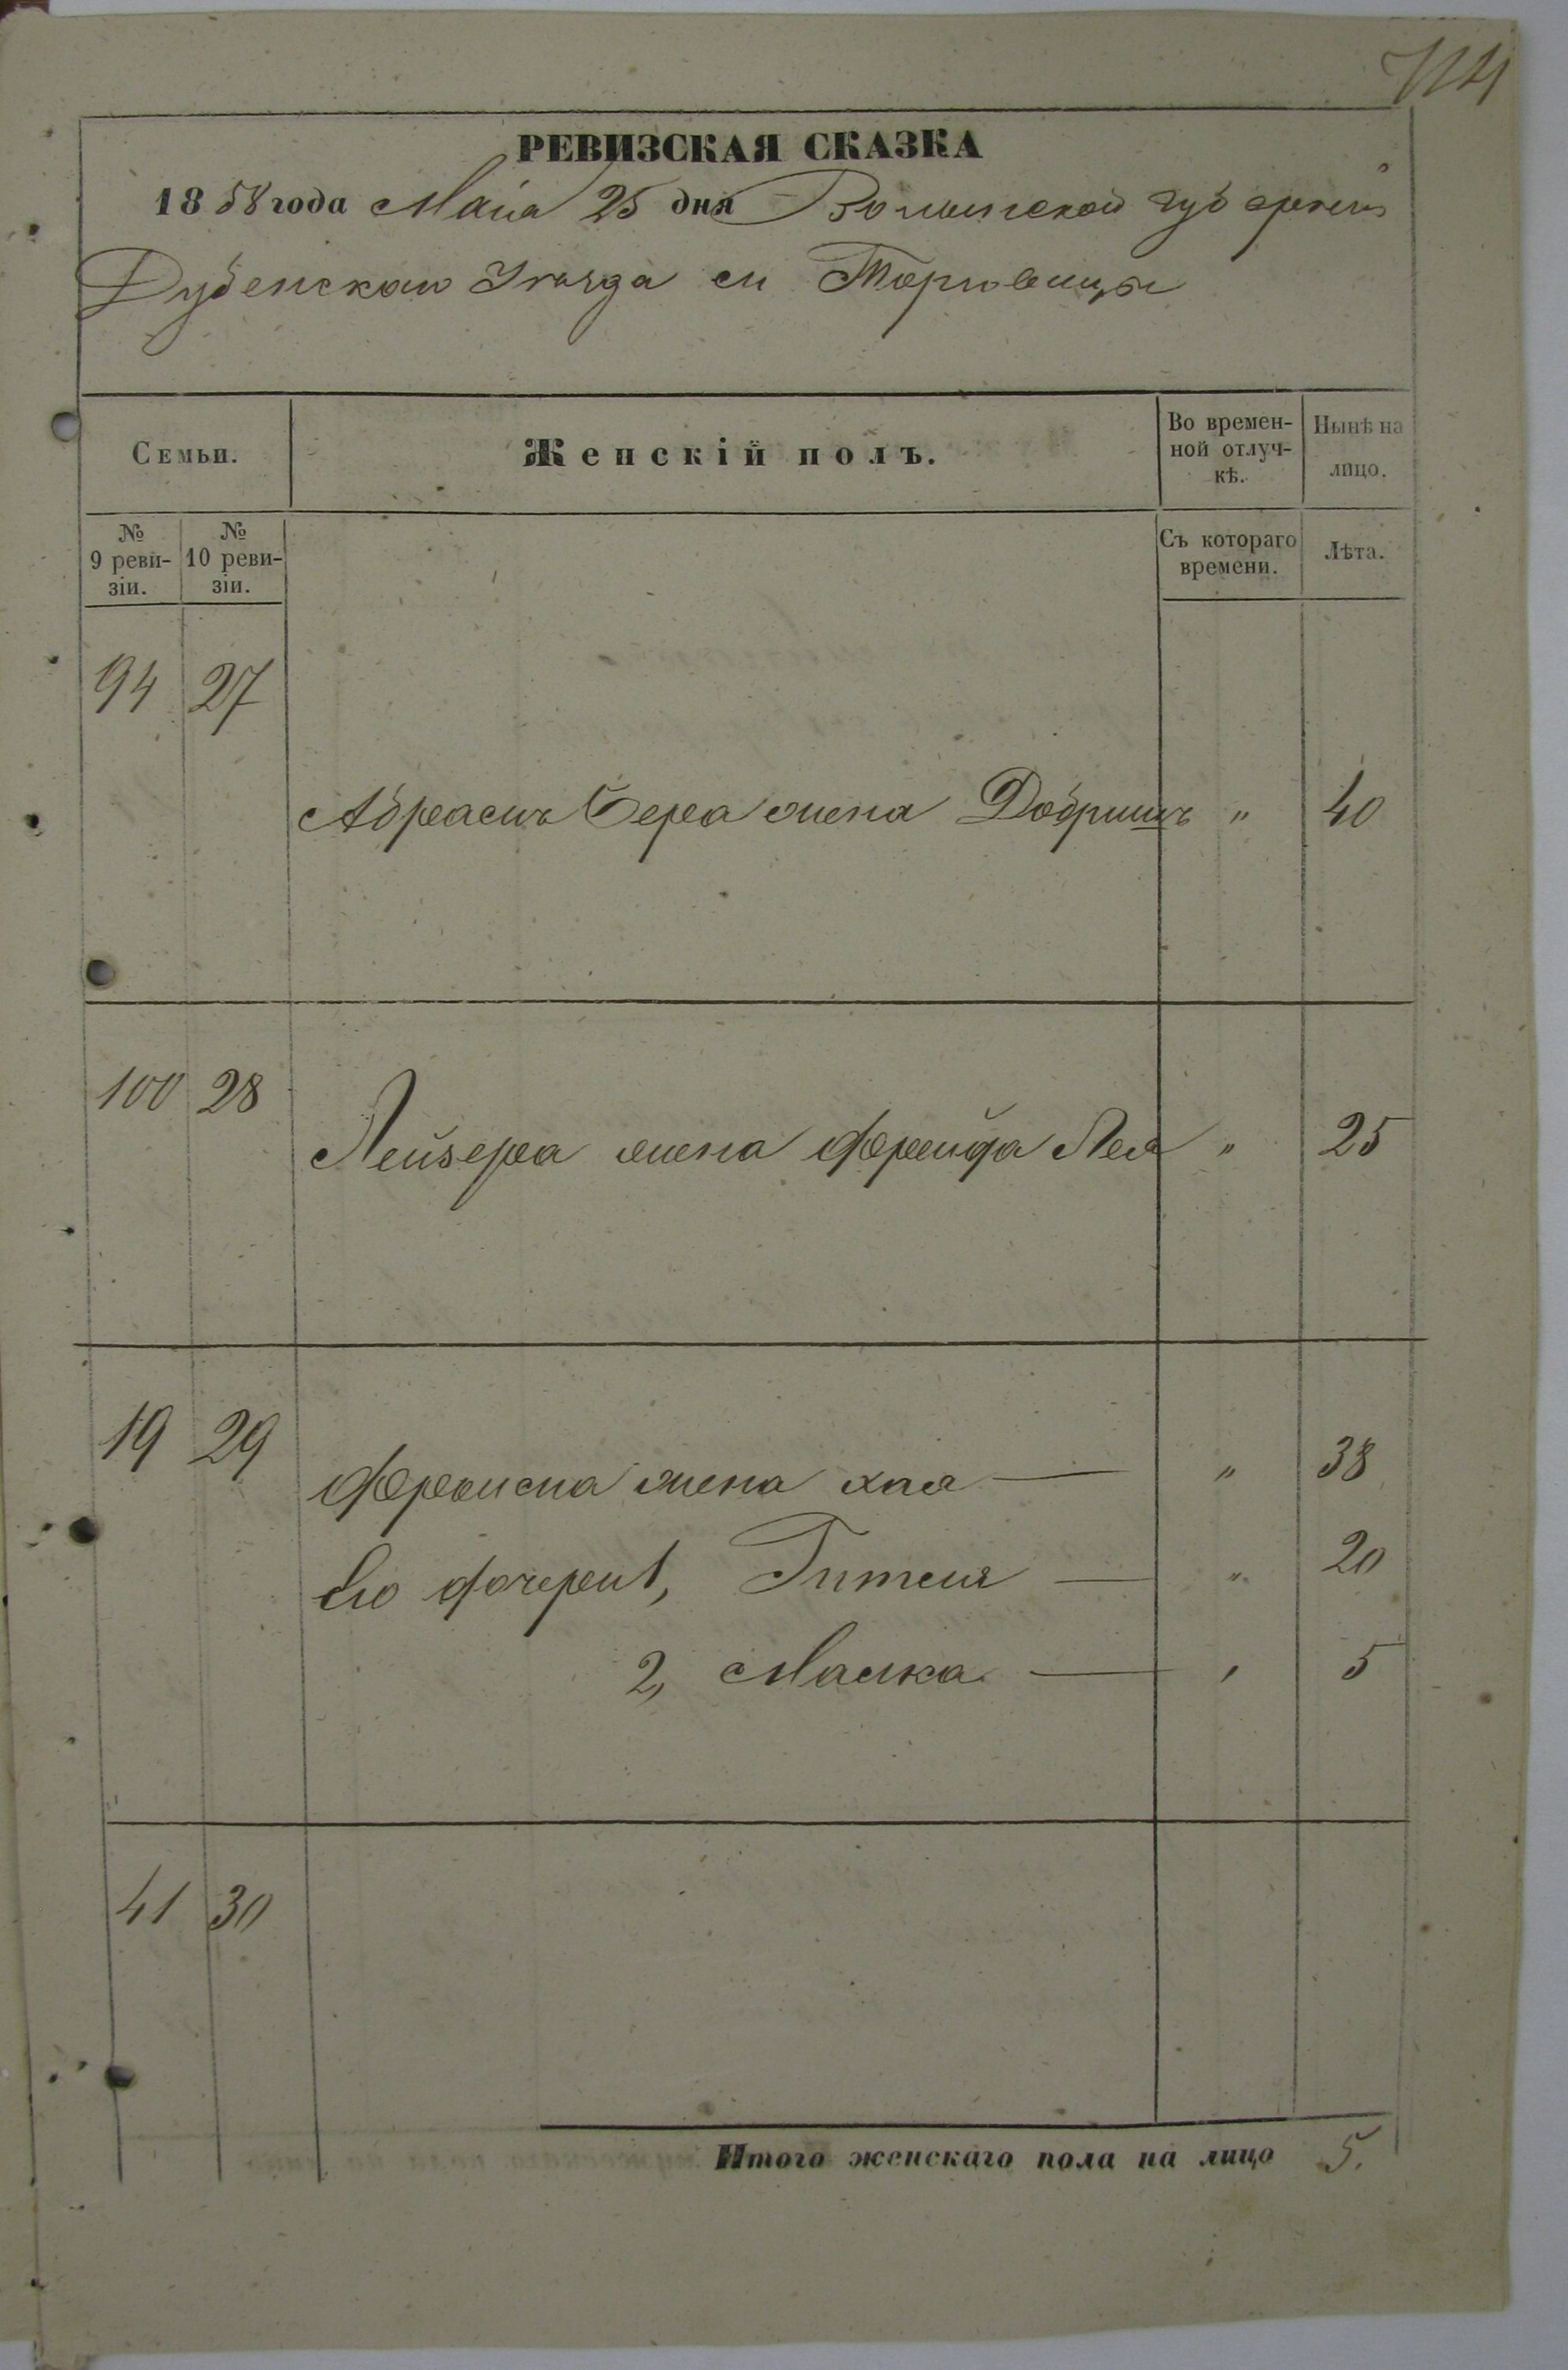 114
РЕВИЗСКАЯ СКАЗКА
1858 года Маія 25 дня Волынской губерніи
Дубенскаго Уѣзда м Торговицы
Семьи.
Женскій полъ.
Во времен-
ной отлуч-
кѣ.
Нынѣ на
лицо.
№
9 реви-
зіи.
№
10 реви-
зіи.
Съ котораго
времени.
Лѣта.
94 27
Абрамъ Бера жена Добришъ " 40
100 28
Лейзера жена Фрейда Лея " 25
19 29
жена хая — " 38
Его дочери 1, Гителя — " 20
2, Малка — " 5
41 30
Итого женскаго пола на лицо 5.